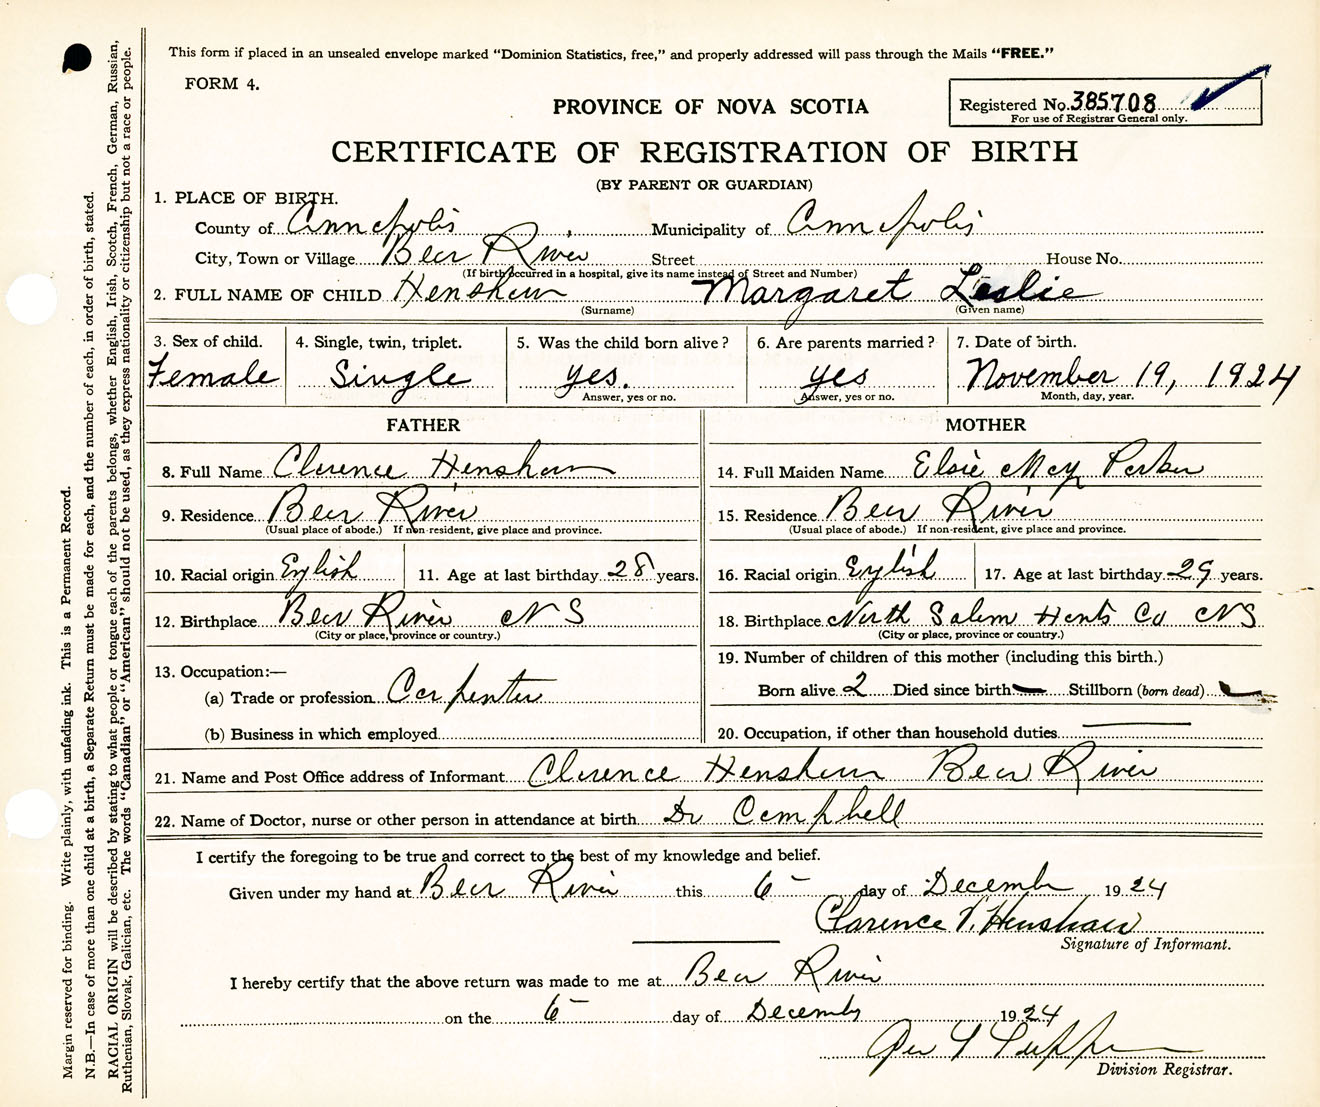 This form if placed in an unsealed envelope marked "Dominion Statistics, free," and properly addressed will pass through the Mails "FREE."
FORM 4.
PROVINCE OF NOVA SCOTIA
Registered No. 385708
For use of Registrar General only.
CERTIFICATE OF REGISTRATION OF BIRTH
(BY PARENT OR GUARDIAN)
1. PLACE OF BIRTH.
County of Annapolis Municipality of Annapolis
City, Town or Village Bear River Street House No.
(If birth occurred in a hospital, give its name instead of Street and Number)
2. FULL NAME OF CHILD Henshaw Margaret Leslie
(Surname) (Given name)
3. Sex of child. 4. Single, twin, triplet. 5. Was the child born alive? 6. Are parents married? 7. Date of birth.
Female Single yes. yes November 19, 1924
Answer, yes or no. Answer, yes or no. Month, day, year.
FATHER MOTHER
8. Full Name Clarence Henshaw 14. Full Maiden Name Elsie May Parker
9. Residence Bear River 15. Residence Bear River
(Usual place of abode.) If non-resident, give place and province. (Usual place of abode.) If non-resident, give place and province.
10. Racial origin English 11. Age at last birthday 28 years. 16. Racial origin English 17. Age at last birthday 29 years.
12. Birthplace Bear River N S 18. Birthplace North Salem Hants Co N S
(City or place, province or country.) (City or place, province or country.)
13. Occupation:— 19. Number of children of this mother (including this birth.)
(a) Trade or profession Carpenter Born alive 2 Died since birth — Stillborn (born dead) —
(b) Business in which employed 20. Occupation, if other than household duties —
21. Name and Post Office address of Informant Clarence Henshaw Bear River
22. Name of Doctor, nurse or other person in attendance at birth Dr Campbell
I certify the foregoing to be true and correct to the best of my knowledge and belief.
Given under my hand at Bear River this 6 day of December 1924
Clarence V. Henshaw
Signature of Informant.
I hereby certify that the above return was made to me at Bear River
on the 6 day of December 1924
Division Registrar.
Margin reserved for binding. Write plainly, with unfading ink. This is a Permanent Record.
N.B.—In case of more than one child at a birth, a Separate Return must be made for each, and the number of each, in order of birth, stated.
RACIAL ORIGIN will be described by stating to what people or tongue each of the parents belongs, whether English, Irish, Scotch, French, German, Russian,
Ruthenian, Slovak, Galician, etc. The words "Canadian" or "American" should not be used, as they express nationality or citizenship but not a race or people.